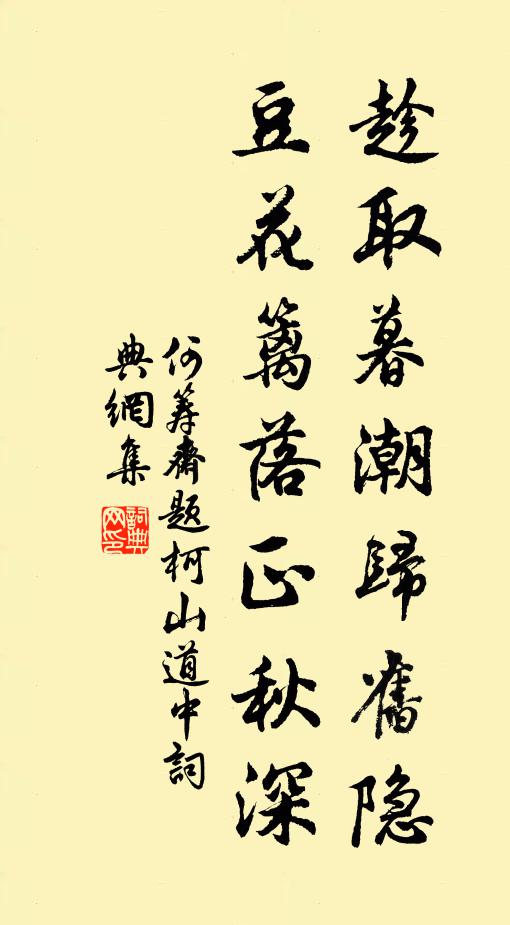 趁取暮潮歸舊隐
豆花篱落正秋深
何筹齋题柯山道中詞
典網集
詞典网印